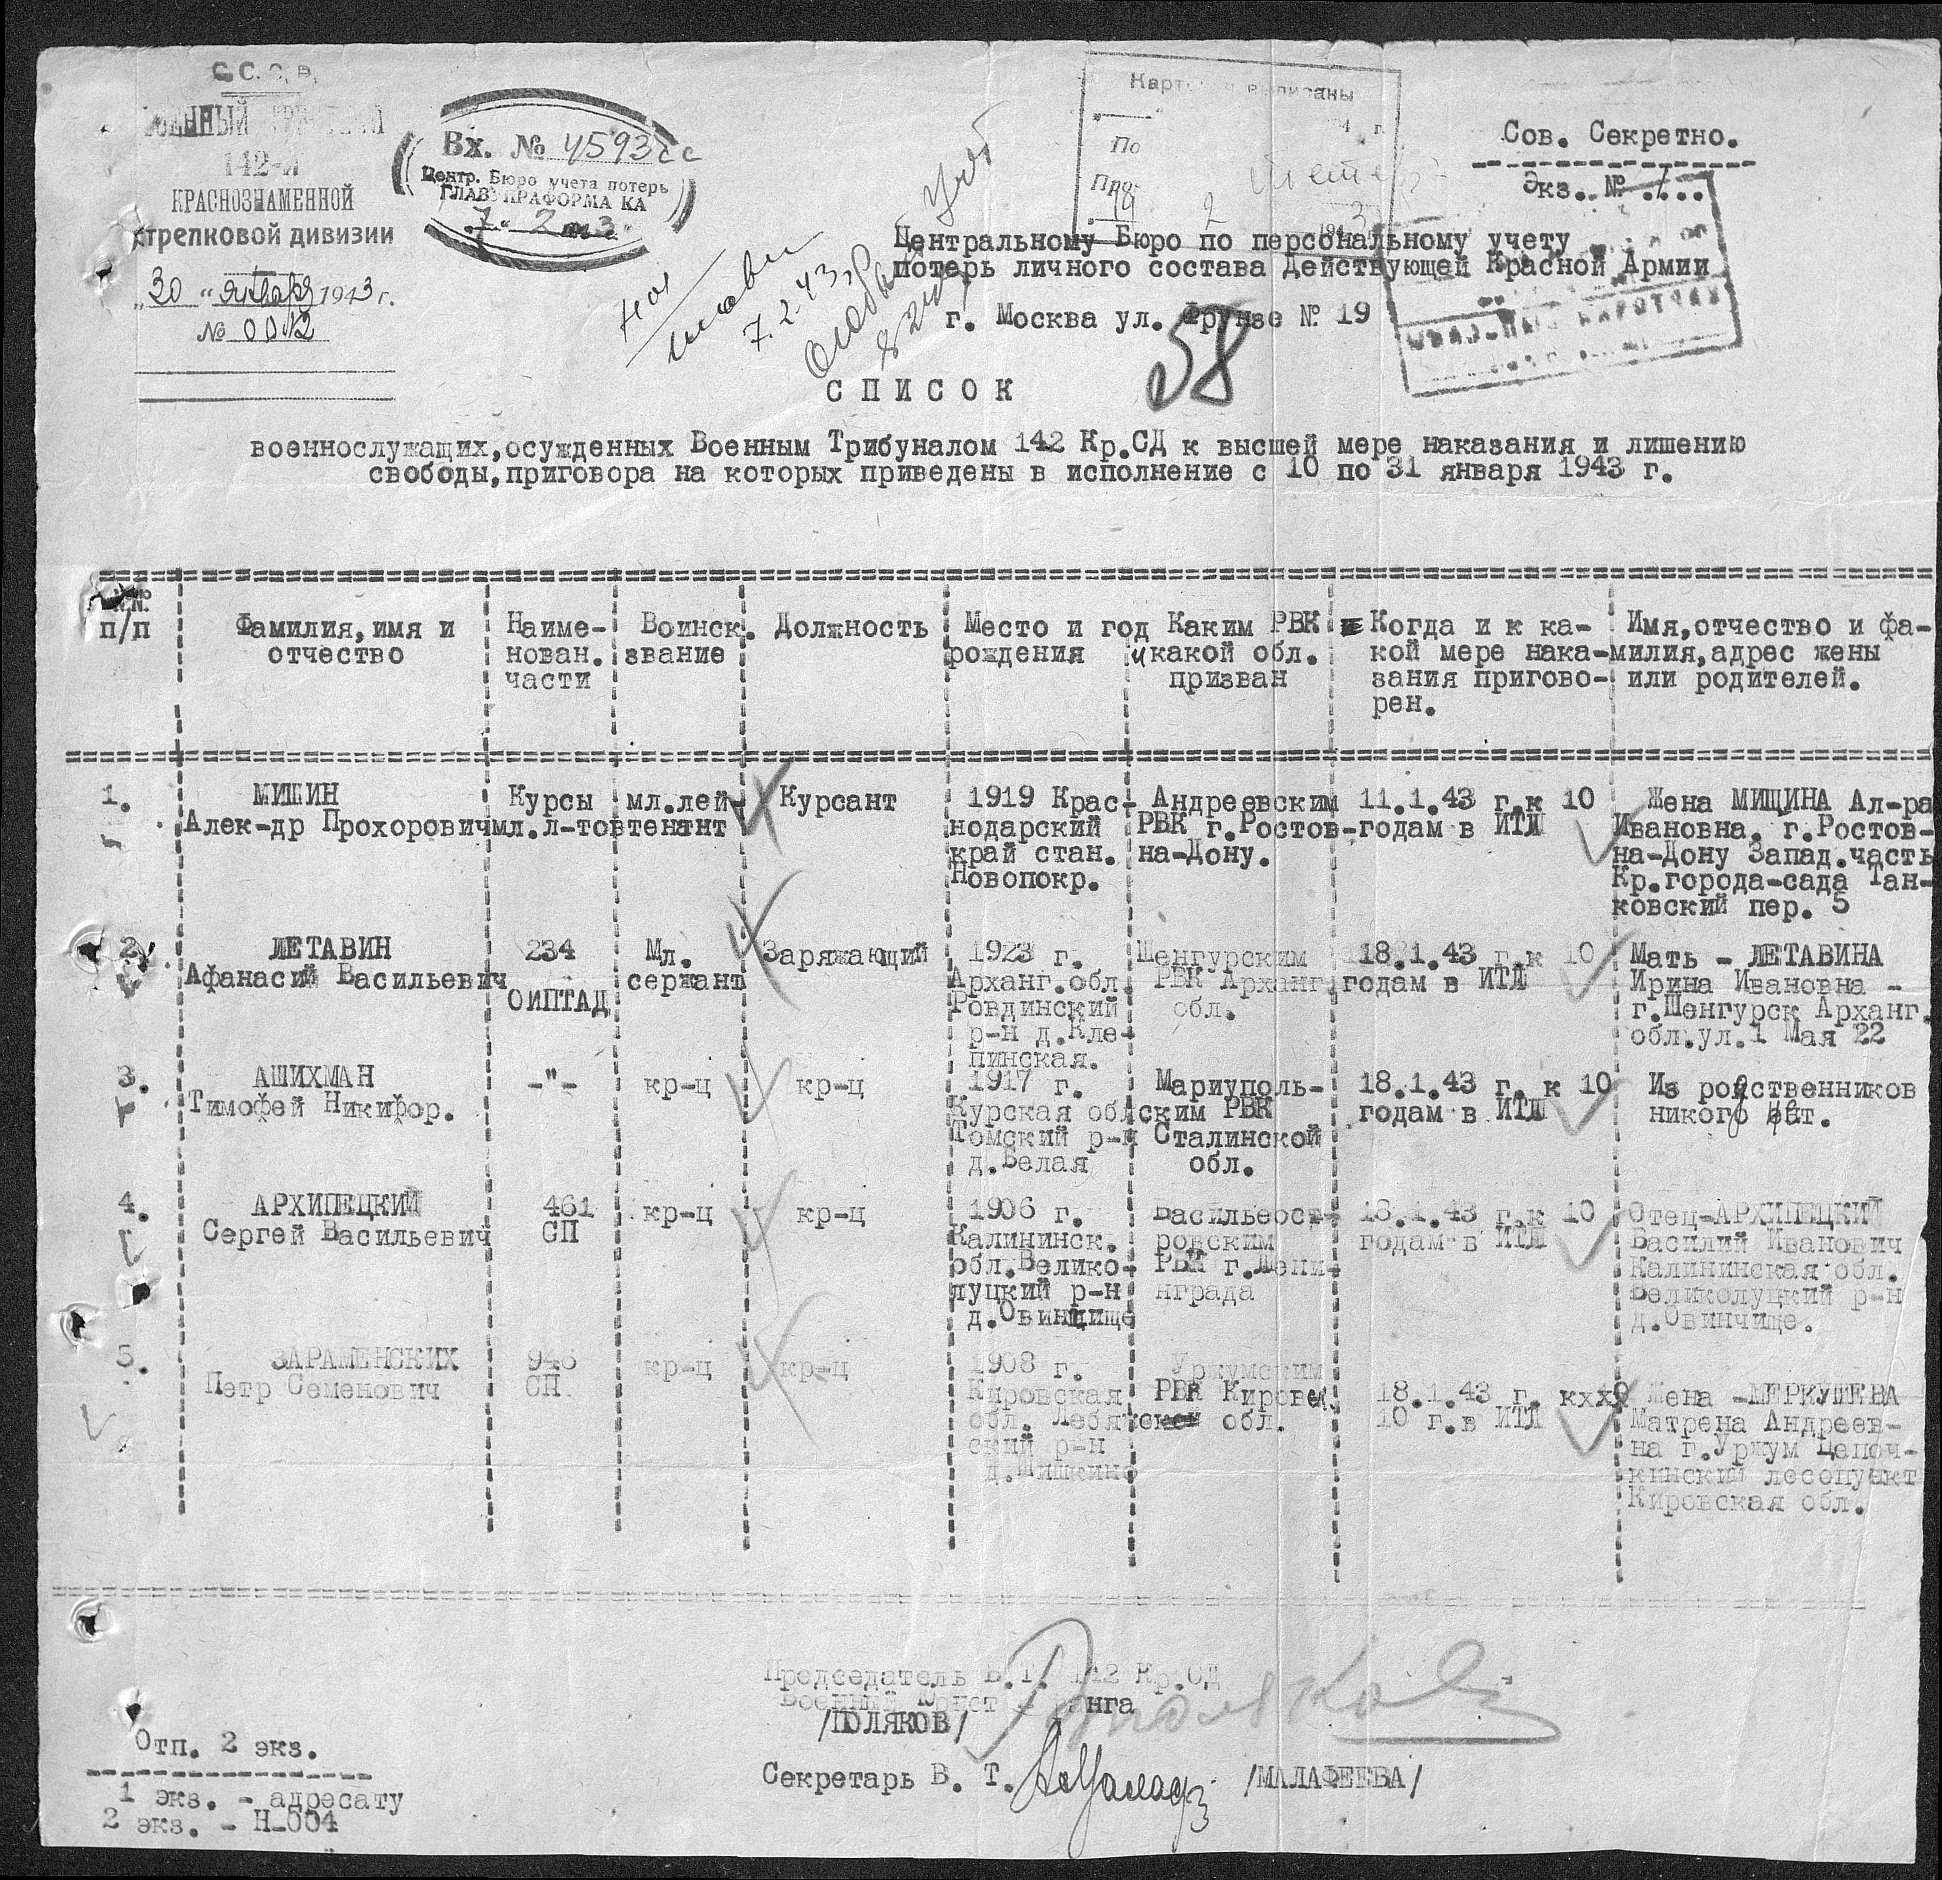 С.С.С.Р.
ВОЕННЫЙ ТРИБУНАЛ
142-й
КРАСНОЗНАМЕННОЙ
стрелковой дивизии
„30" января 1943 г.
№ 0042
Вх. № 4593сс
Центр. Бюро учета потерь
ГЛАВУПРАФОРМА КА
„7" 2 1943
7.2.43
Карточки выписаны
По
Сов. Секретно.
Экз. № 1..
Центральному Бюро по персональному учету
потерь личного состава Действующей Красной Армии
г. Москва ул. Фрунзе № 19
58
СПИСОК
военнослужащих,осужденных Военным Трибуналом 142 Кр.СД к высшей мере наказания и лишению
свободы,приговора на которых приведены в исполнение с 10 по 31 января 1943 г.
№№ п/п
Фамилия,имя и отчество
Наиме-нован. части
Воинск. звание
Должность
Место и год рождения
Каким РВК и какой обл. призван
Когда и к ка-кой мере нака-зания пригово-рен.
Имя,отчество и фа-милия,адрес жены или родителей.
1. МИШИН Курсы мл.лей- Курсант 1919 Крас- Андреевским 11.1.43 г.к 10 Жена МИЩИНА Ал-ра
Алек-др Прохорович мл.л-тов тенатнт нодарский РВК г.Ростов- годам в ИТЛ Ивановна. г.Ростов-
край стан. на-Дону. на-Дону Запад.часть
Новопокр. Кр.города-сада Тан-
ковский пер. 5
2. ЛЕТАВИН 234 Мл. Заряжающий 1923 г. Шенгурским 18.1.43 г.к 10 Мать - ЛЕТАВИНА
Афанасий Васильевич ОИПТАД сержант Арханг.обл. РВК Арханг. годам в ИТЛ Ирина Ивановна -
Ровдинский обл. г.Шенгурск Арханг.
р-н д.Кле- обл.ул.1 Мая 22
пинская.
3. АШИХМАН -"- кр-ц кр-ц 1917 г. Мариуполь- 18.1.43 г. к 10 Из родственников
Тимофей Никифор. Курская обл ским РВК годам в ИТЛ никого нет.
Томский р-н Сталинской
д.Белая обл.
4. АРХИПЕЦКИЙ 461 кр-ц кр-ц 1906 г. Васильеост- 18.1.43 г.к 10 Отец-АРХИПЕЦКИЙ
Сергей Васильевич СП Калининск. ровским годам в ИТЛ Василий Иванович
обл.Велико- РВК г.Лени- Калининская обл.
луцкий р-н нграда Великолуцкий р-н
д.Овинчище д.Овинчище.
5. ЗАРАМЕНСКИХ 946 кр-ц кр-ц 1908 г. Уржумским 18.1.43 г. кхх Жена -МЕРКУШЕВА
Петр Семенович СП. Кировская РВК Киров 10 г.в ИТЛ Матрена Андреев-
обл. Лебяж обл. на г.Уржум Цепоч-
ский р-н кинский лесопункт
д.Шишкино Кировская обл.
Председатель В.Т. 142 Кр.СД
Военный Юрист ранга
/ПОЛЯКОВ/
Секретарь В. Т. /МАЛАФЕЕВА/
Отп. 2 экз.
1 экз. - адресату
2 экз. - Н-004